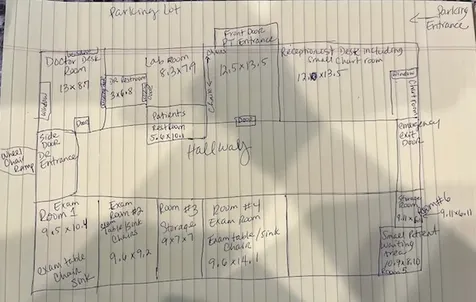 Parking Lot
Parking
Entrance
Front Door
PT Entrance
Doctor Desk
Room
13 x 8.7
window
DR Restroom
3 x 6.8
Lab Room
8.3 x 7.9
12.5 x 13.5
Receptionest Desk including
Small Chart room
12.10 x 13.5
window
Chart room
Patients
Restroom
5.6 x 10.1
Door
Door
Side
Door
DR
Entrance
Wheel
Chair
Ramp
Hallway
Emergency
exit Door
Exam
Room 1
9.5 x 10.4
exam table
Chair
Sink
Exam
Room #2
Table/Sink
Chairs
9.6 x 9.2
Room #3
Storage
9 x 7 x 7
Room #4
Exam Room
Exam table/Sink
Chair
9.6 x 14.1
Storage
Room
Room #6
9.11 x 6.11
Small Patient
Waiting
Area
10.9 x 8.10
Room 5